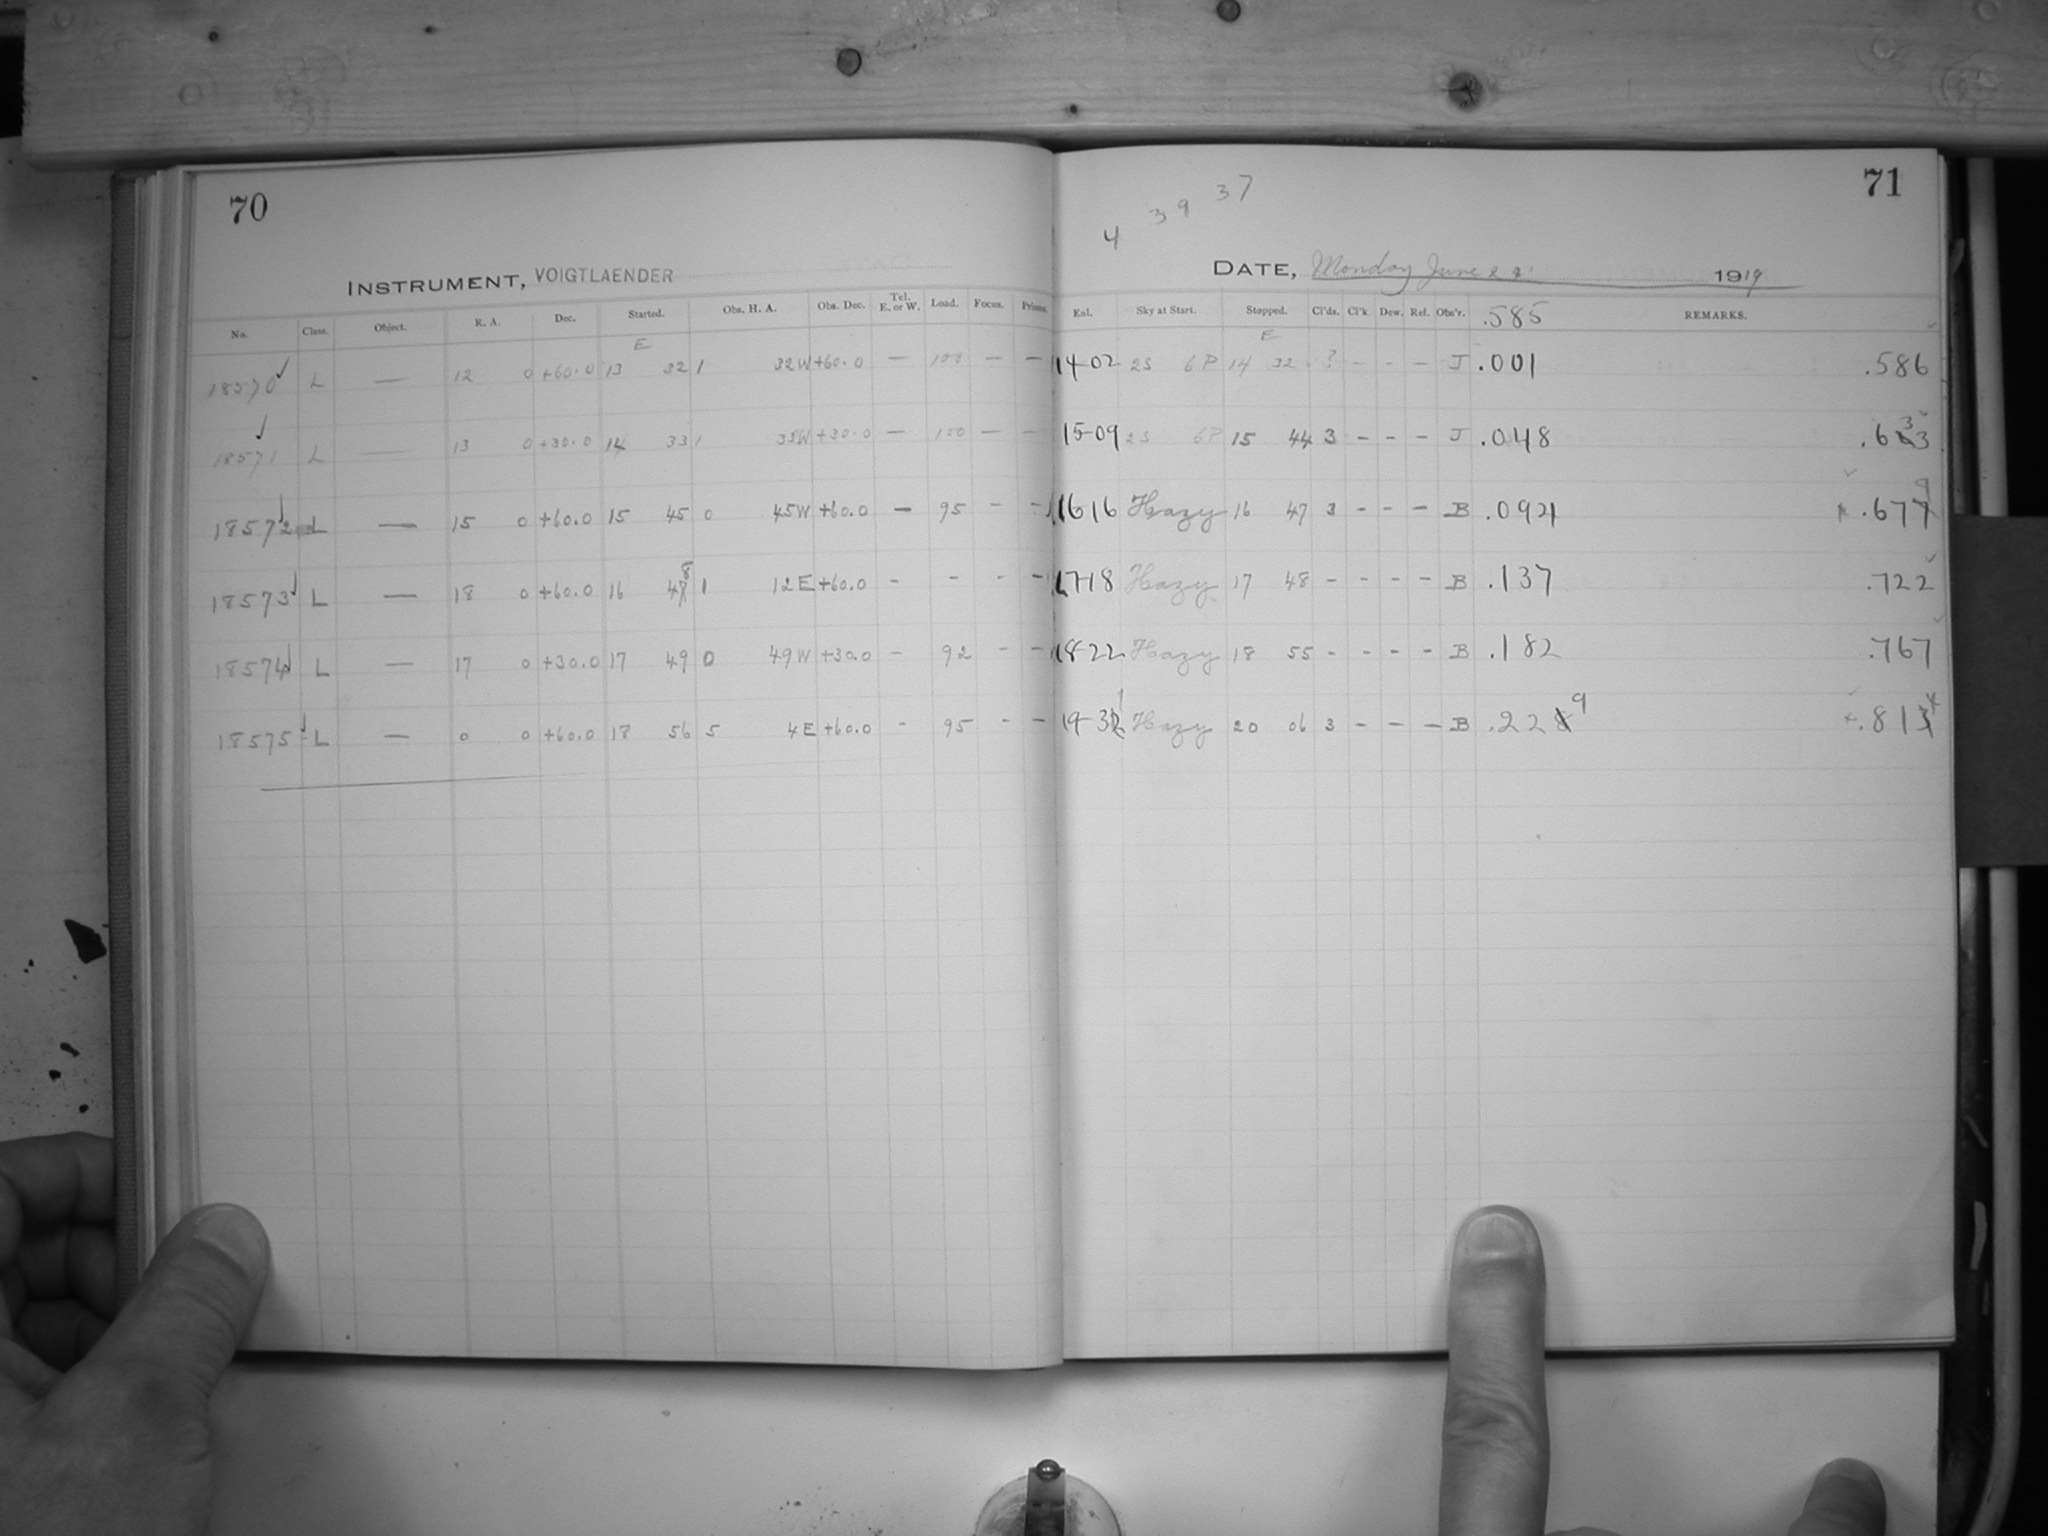 70
INSTRUMENT, VOIGTLAENDER
No. Class. Object. R. A. Dec. Started. Obs. H. A. Obs. Dec. Tel. E. or W. Load. Focus. Prisms.
E
18570 ✓ L — 12 0 +60.0 13 32 1 32W +60.0 — 100 — —
18571 ✓ L — 13 0 +30.0 14 33 1 33W +30.0 — 100 — —
18572 ✓ L — 15 0 +60.0 15 45 0 45W +60.0 — 95 - -
18573 ✓ L — 18 0 +60.0 16 48 1 12E +60.0 - - - -
18574 ✓ L — 17 0 +30.0 17 49 0 49W +30.0 - 92 - -
18575 ✓ L — 0 0 +60.0 18 56 5 4E +60.0 - 95 - -
71
4 39 37
DATE, Monday June 1919
Ent. Sky at Start. Stopped. Cl'ds. Cl'k Dew. Ref. Obs'r. .585 REMARKS.
E
14-02 2S 6P 14 32 - ? - - - J .001 .586
15-09 2S 6P 15 44 3 - - - J .048 .633
16 16 Hazy 16 47 3 - - - B .679
17-18 Hazy 17 48 - - - - B .137 .722
18-22 Hazy 18 55 - - - - B .182 .767
19-31 Hazy 20 06 3 - - - B .229 .814